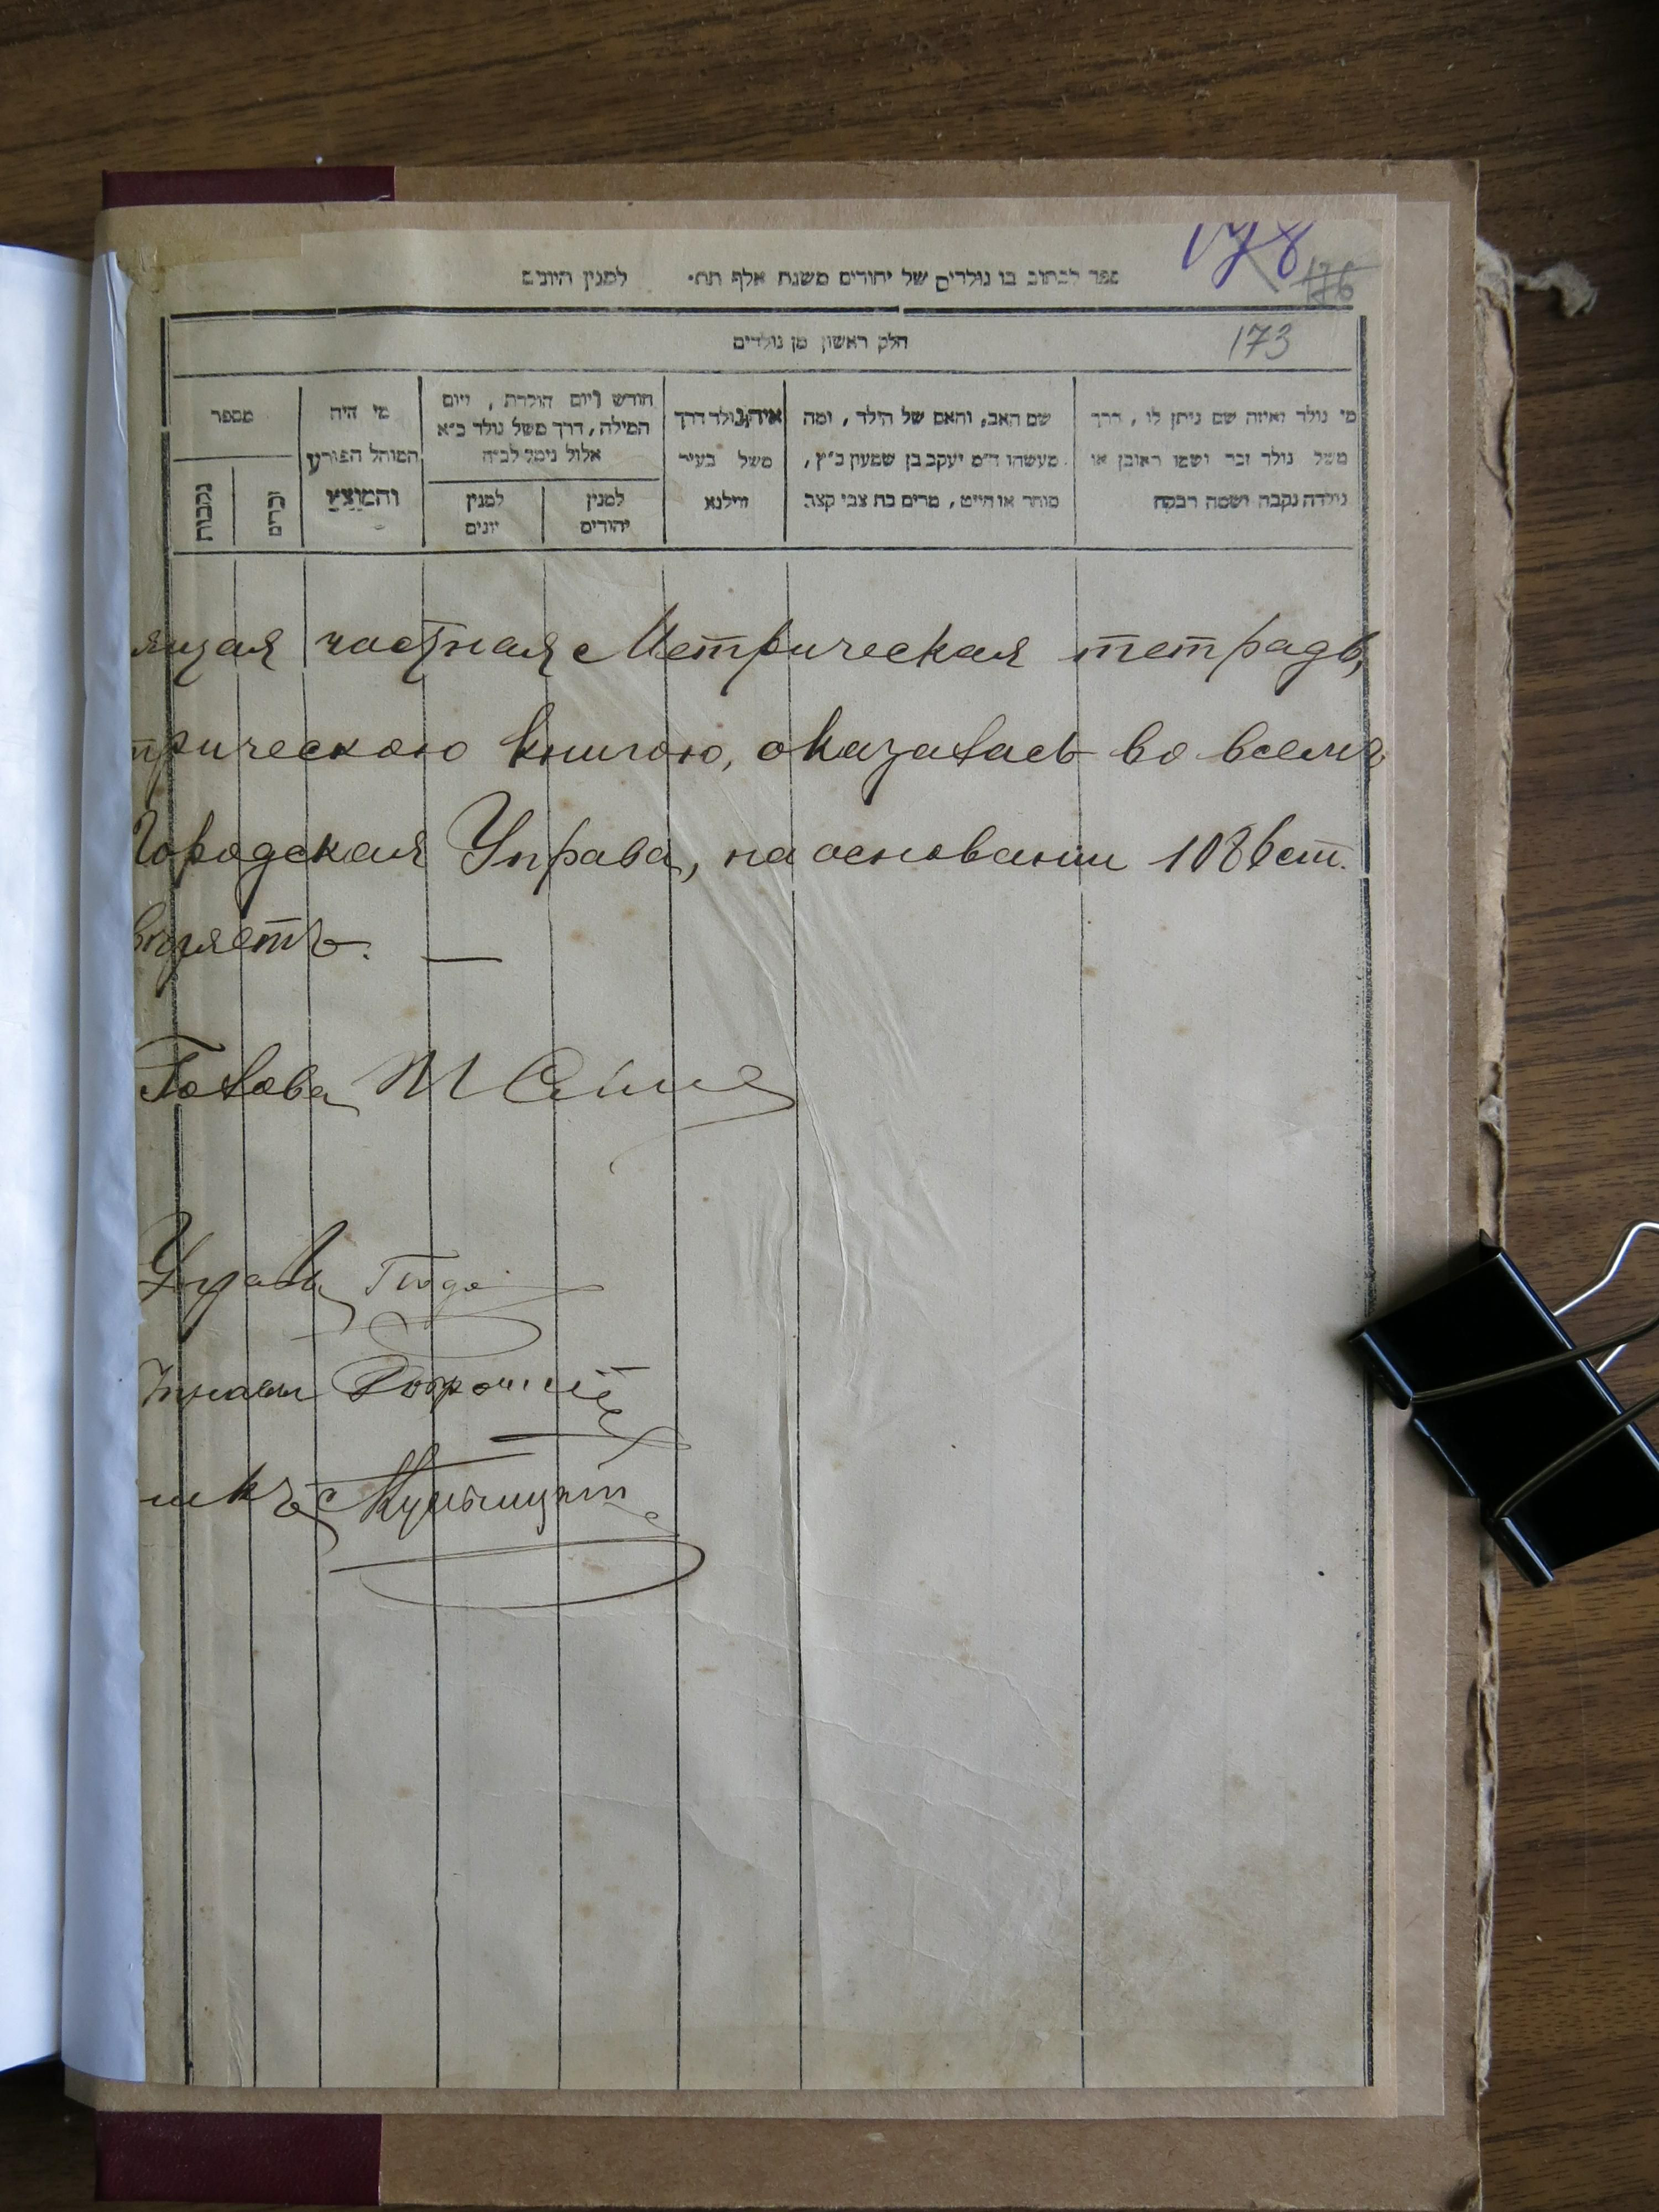 178
176
ספר לכתוב בו נולדים של יהודים משנת אלף תת׳ למנין היונים
173
חלק ראשון מן נולדים
מי נולד ואיזה שם ניתן לו, דרך
משל נולד זכר ושמו ראובן או
נולדה נקבה ושמה רבקה
שם האב, והאם של הילד, ומה
מעשהו ד״מ יעקב בן שמעון כ״ץ,
סוחר או חייט, מרים בת צבי קצב
איה נולד דרך
משל בעיר
ווילנא
חודש ויום הולדת, ויום
המילה, דרך משל נולד כ״א
אלול נימול לב״ה
למנין
יהודים
למנין
יונים
מי היה
המוהל הפורע
והמוצץ
מספר
זכרים
נקבות
ящая частная Метрическая тетрадь,
трическою книгою, оказалась во всемъ
Городская Управа, на основании 1086 ст.
ряетъ. —
Голова
Управы
Управы
икъ